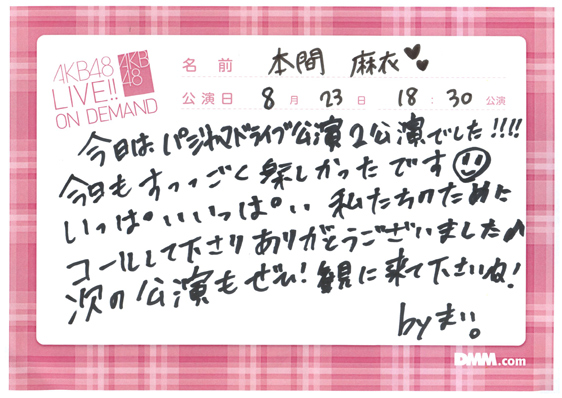 AKB48
LIVE!!
ON DEMAND
AKB
48
名前 本間 麻衣♥♥
公演日 8月23日 18:30公演
今日はパジャマドライブ公演2公演でした!!!!
今日もすっっごく楽しかったです☺
いっぱいいいっぱい 私たちのために
コールして下さり ありがとうございました♪
次の公演もぜひ!観に来て下さいね!
by まい。
DMM.com